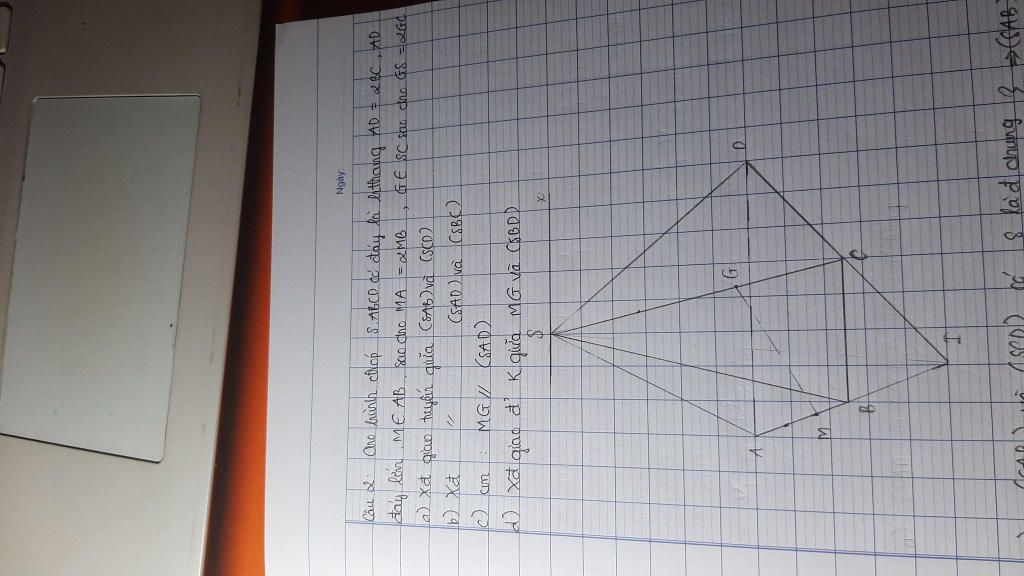 Ngày:
Câu 2: Cho hình chóp S ABCD có đáy là hthang AD = 2BC, AD
đáy lớn. M ∈ AB sao cho MA = 2MB, G ∈ SC sao cho GS = 2GC
a) Xđ giao tuyến giữa (SAB) và (SCD)
b) Xđ " (SAD) và (SBC)
c) cm: MG // (SAD)
d) Xđ giao đ' K giữa MG và (SBD)
S x
A D
G
M B C
I
(SAB) và (SCD) có S là đ chung } → (SAB)